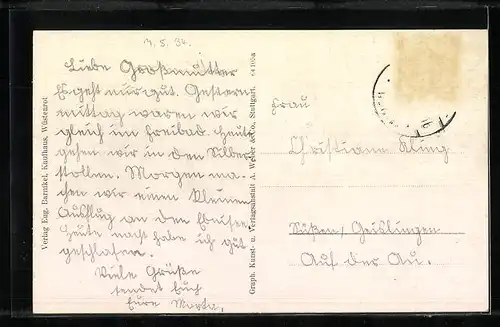 4.5.34.
Liebe Großmutter
Es geht nur gut. Gestern
mittag waren wir
gleich im Freibad. Heute
gehen wir in den Silber
stollen. Morgen ma-
chen wir einen kleinen
Ausflug an den
Heute nacht habe ich gut
geschlafen.
Viele Grüße
sendet Euch
Eure Marta.
Verlag Eug. Barnikel, Kaufhaus, Wüstenrot
Graph. Kunst- u. Verlagsanstalt A. Weber & Co. Stuttgart.
Frau
Christiane Kling
Süßen/Geislingen
Auf der Au.